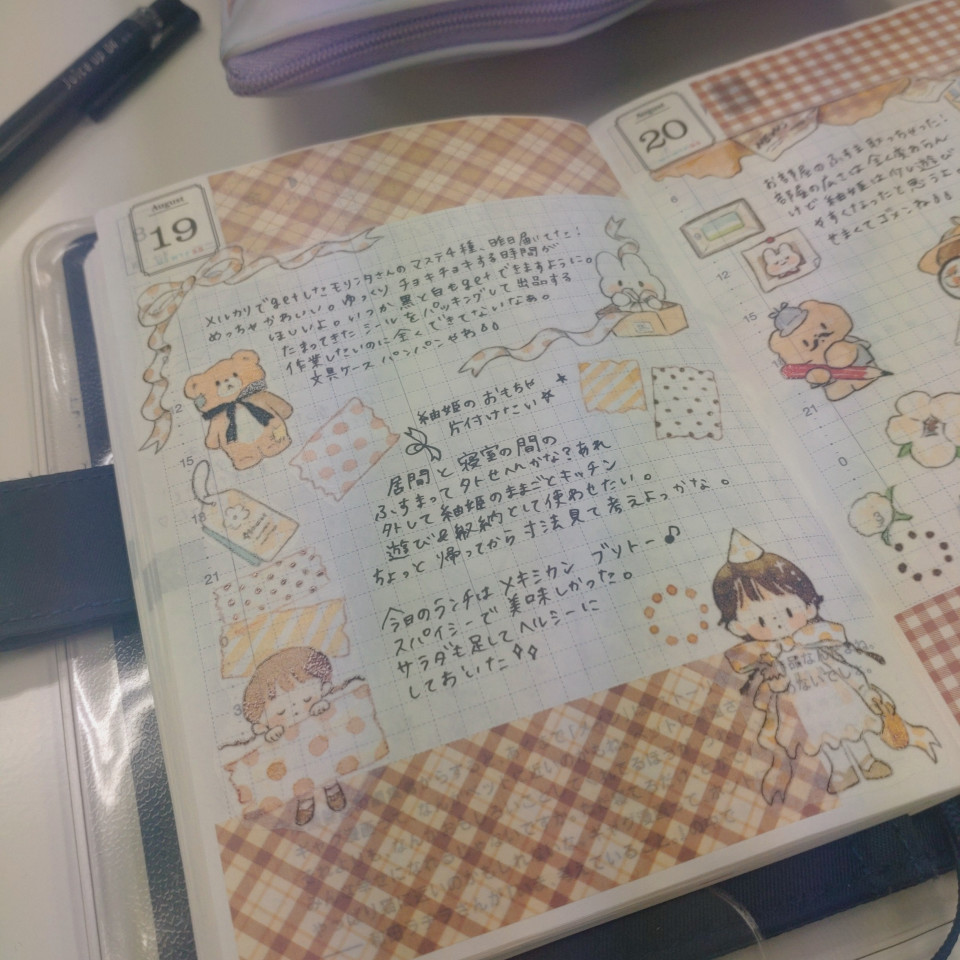 Juice up 04
August
19
メルカリでgetしたモリンタさんのマステ4種、昨日届いてた！
めっちゃかわいい。ゆっくりチョキチョキする時間が
ほしいよ。いつか黒と白もgetできますように。
たまってきたシールをパッキングして出品する
作業したいのに全くできてないなぁ。
文具ケースパンパンやわ
紬姫のおもちゃ
片付けたい
居間と寝室の間の
ふすまって外せへんかな？あれ
外して紬姫のままごとキッチン
遊び&収納として使わせたい。
ちょっと帰ってから寸法見て考えよっかな。
今日のランチはメキシカンブリトー♪
スパイシーで美味しかった。
サラダも足してヘルシーに
しておいた
12
15
18
21
0
3
August
20
MEMO
お部屋のふすま取っちゃった！
部屋の広さは全く変わらん
けど紬姫は少し遊び
やすくなったと思うよ
せまくてゴメンね
6
9
12
15
21
0
3